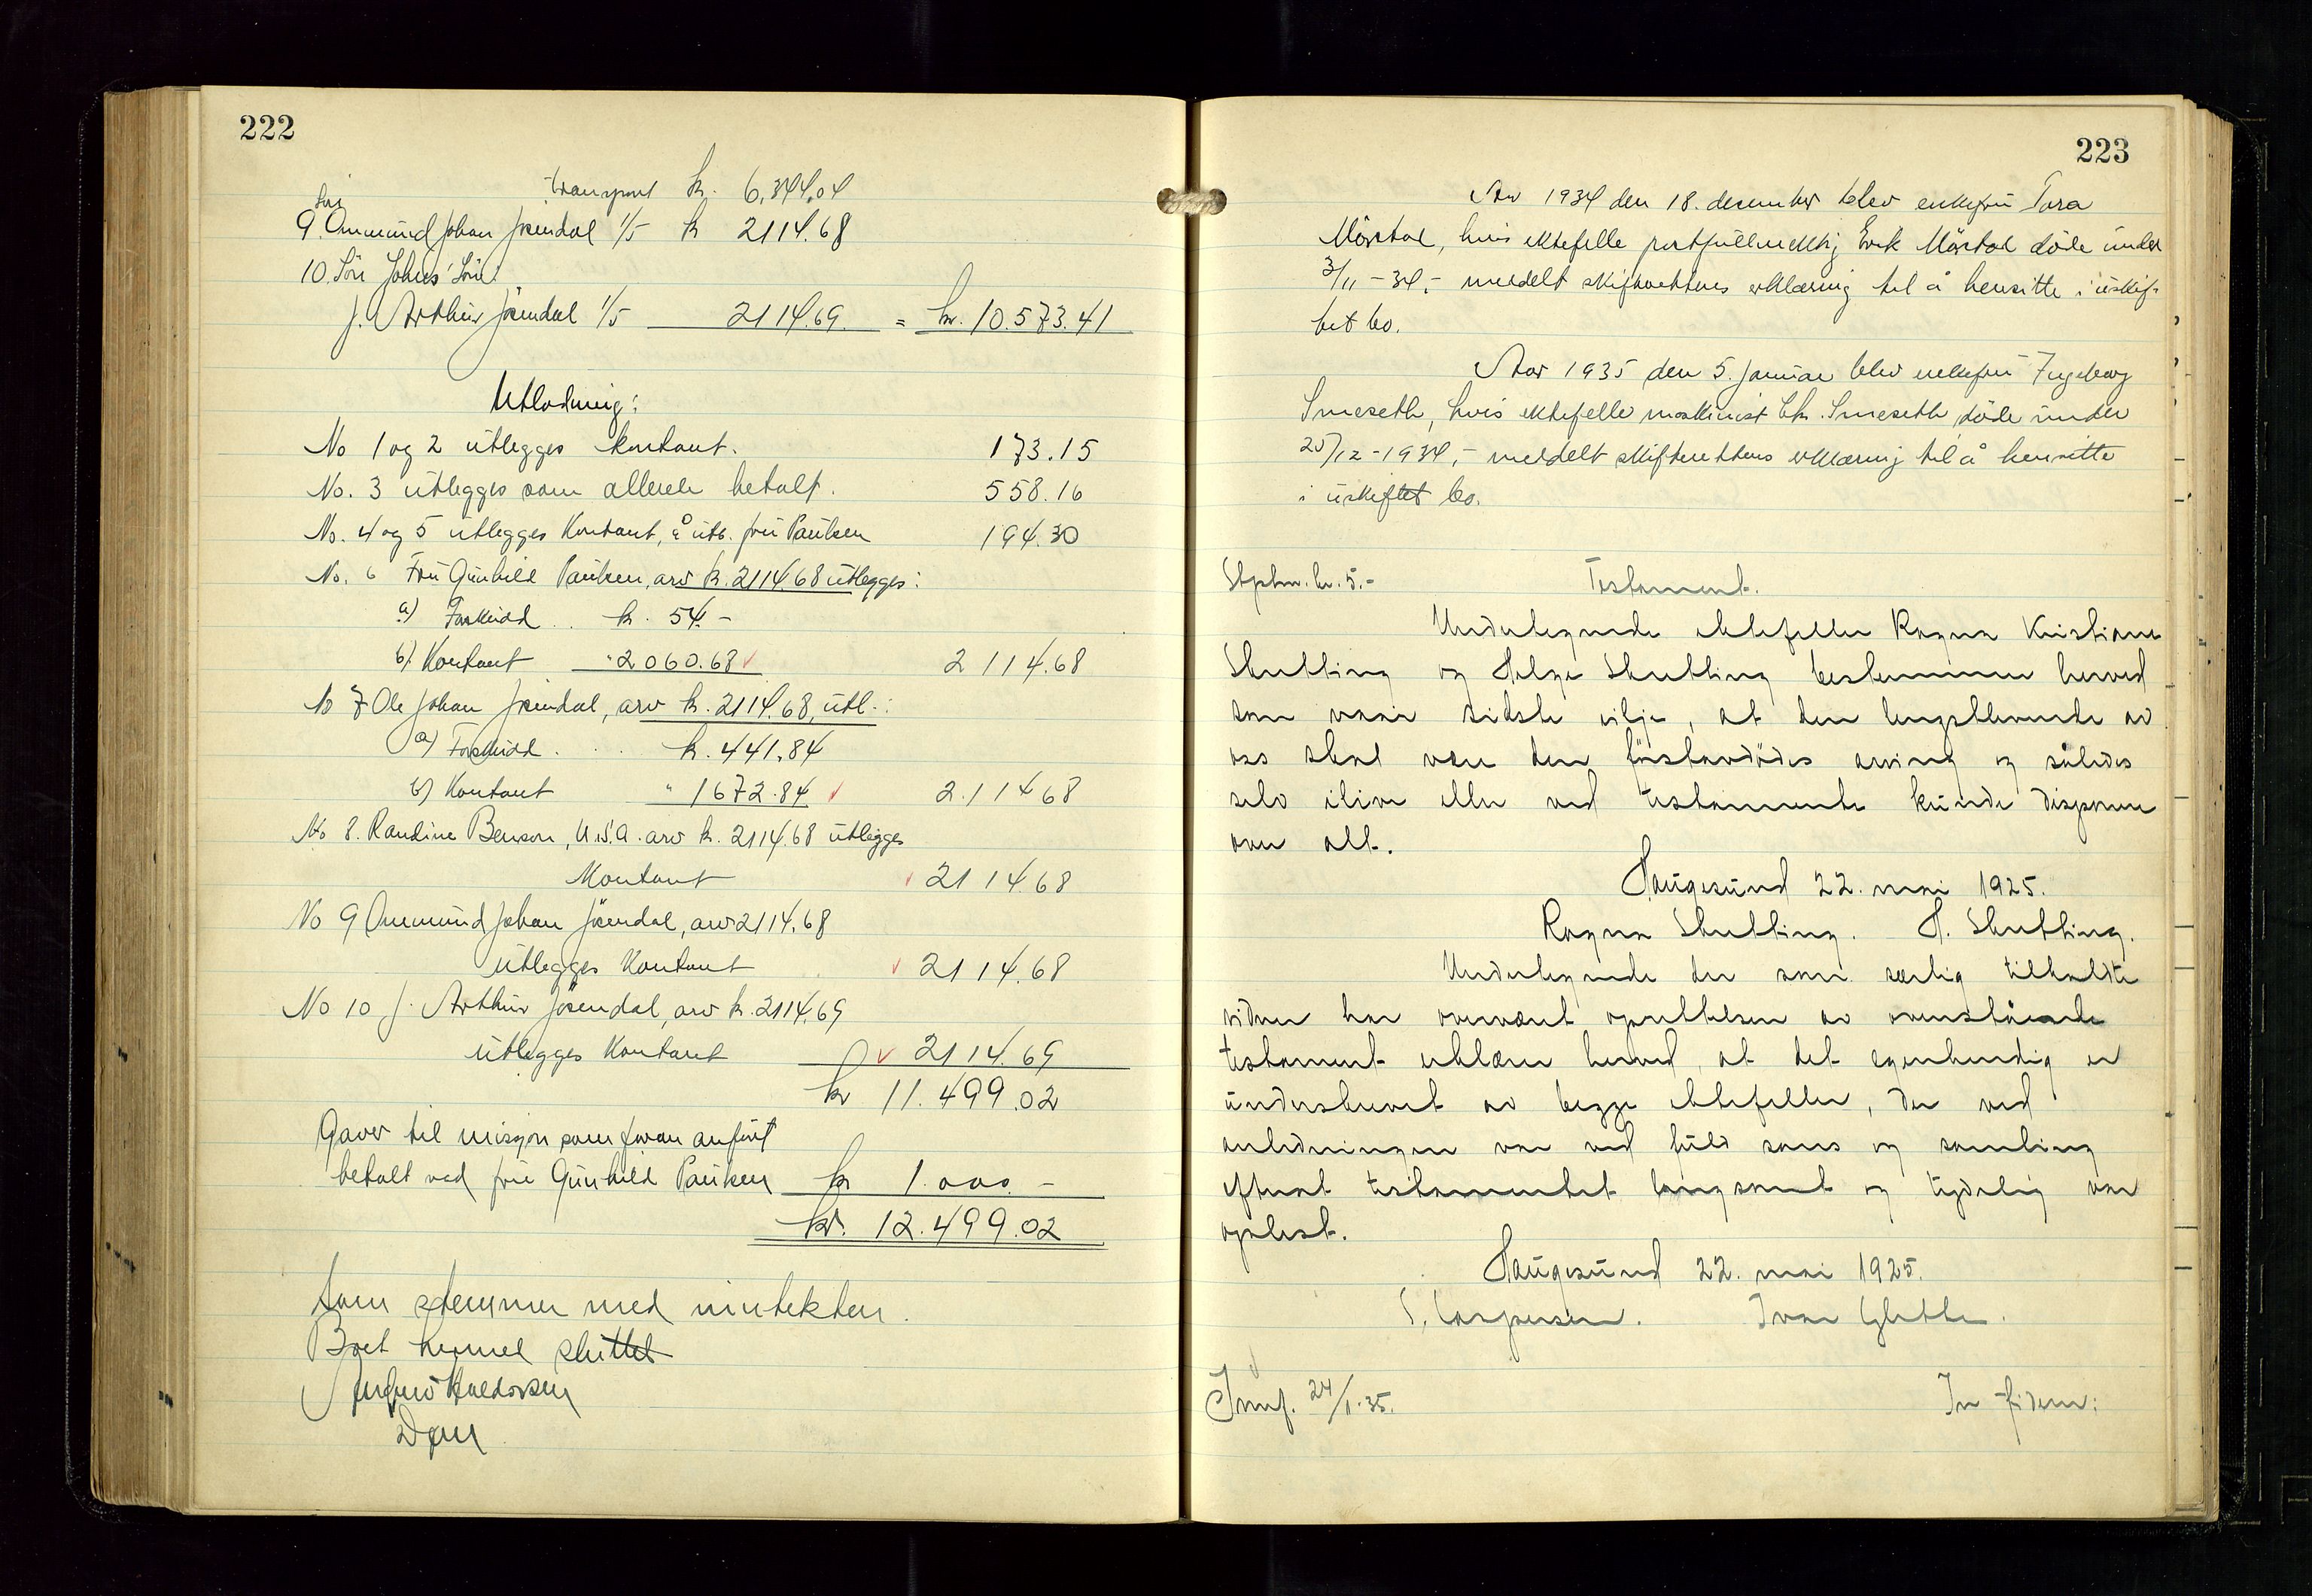 222
transport kr. 6,344,04
Søn
9. Ommund Johan Jøsendal 1/5 kr 2114.68
10. Søn Johns' Søn:
J. Arthur Jøsendal 1/5 2114.69 = kr. 10.573.41
Utlodning:
No 1 og 2 utlegges kontant. 173.15
No. 3 utlegges som allerede betalt. 558.16
No. 4 og 5 utlegges Kontant, å utb. fru Paulsen 194.30
No. 6 Fru Gunhild Paulsen, arv kr. 2114.68 utlegges:
a) Forskudd .. kr. 54.-
b) Kontant " 2060.68 2114.68
No 7 Ole Johan Jøsendal, arv kr. 2114.68, utl.:
a) Forskudd ... kr. 441.84
b) Kontant " 1672.84 2.114 68
No 8. Randine Benson, U.S.A. arv kr. 2114.68 utlegges
Kontant 2114 68
No 9 Ommund Johan Jøsendal, arv 2114.68
utlegges Kontant 2114.68
No 10 J. Arthur Jøsendal, arv kr. 2114.69
utlegges Kontant 2114.69
kr 11.499.02
Gaver til misjon som foran anført
betalt ved fru Gunhild Paulsen kr 1.000.-
kr. 12.499.02
som stemmer med inntekten.
Boet hermed sluttet
223
Aar 1934 den 18. desember blev enkefru Tora
Mörstad, hvis ektefelle postfullmektig Erik Mörstad döde under
3/11-34,- meddelt skifterettens erklæring til å hensitte i uskif-
tet bo.
Aar 1935 den 5. januar blev enkefru Ingeborg
Smeseth, hvis ektefelle maskinist Chr. Smeseth döde under
25/12-1934,- meddelt skifterettens erklæring til å hensitte
i uskiftet bo.
Stplm. kr. 5.- Testament.
Undertegnede ektefeller Ragna Kristiane
Skutling og Helge Skutling bestemmer herved
som vaar sidste vilje, at den lengstlevende av
oss skal være den förstavdödes arving og således
selv ilive eller ved testamente kunde disponere
over alt.
Haugesund 22. mai 1925.
Ragna Skutling. H. Skutling.
Undertegnede der som særlig tilkaldte
vidner har overværet oprettelsen av ovenstående
testament erklærer herved, at det egenhendig er
underskrevet av begge ektefeller, der ved
anledningen var ved fuld sans og samling
efterat testamentet langsomt og tydelig var
oplest.
Haugesund 22. mai 1925.
S. Caspersen. Ivar Glette.
Innf. 24/1.35. In fidem: